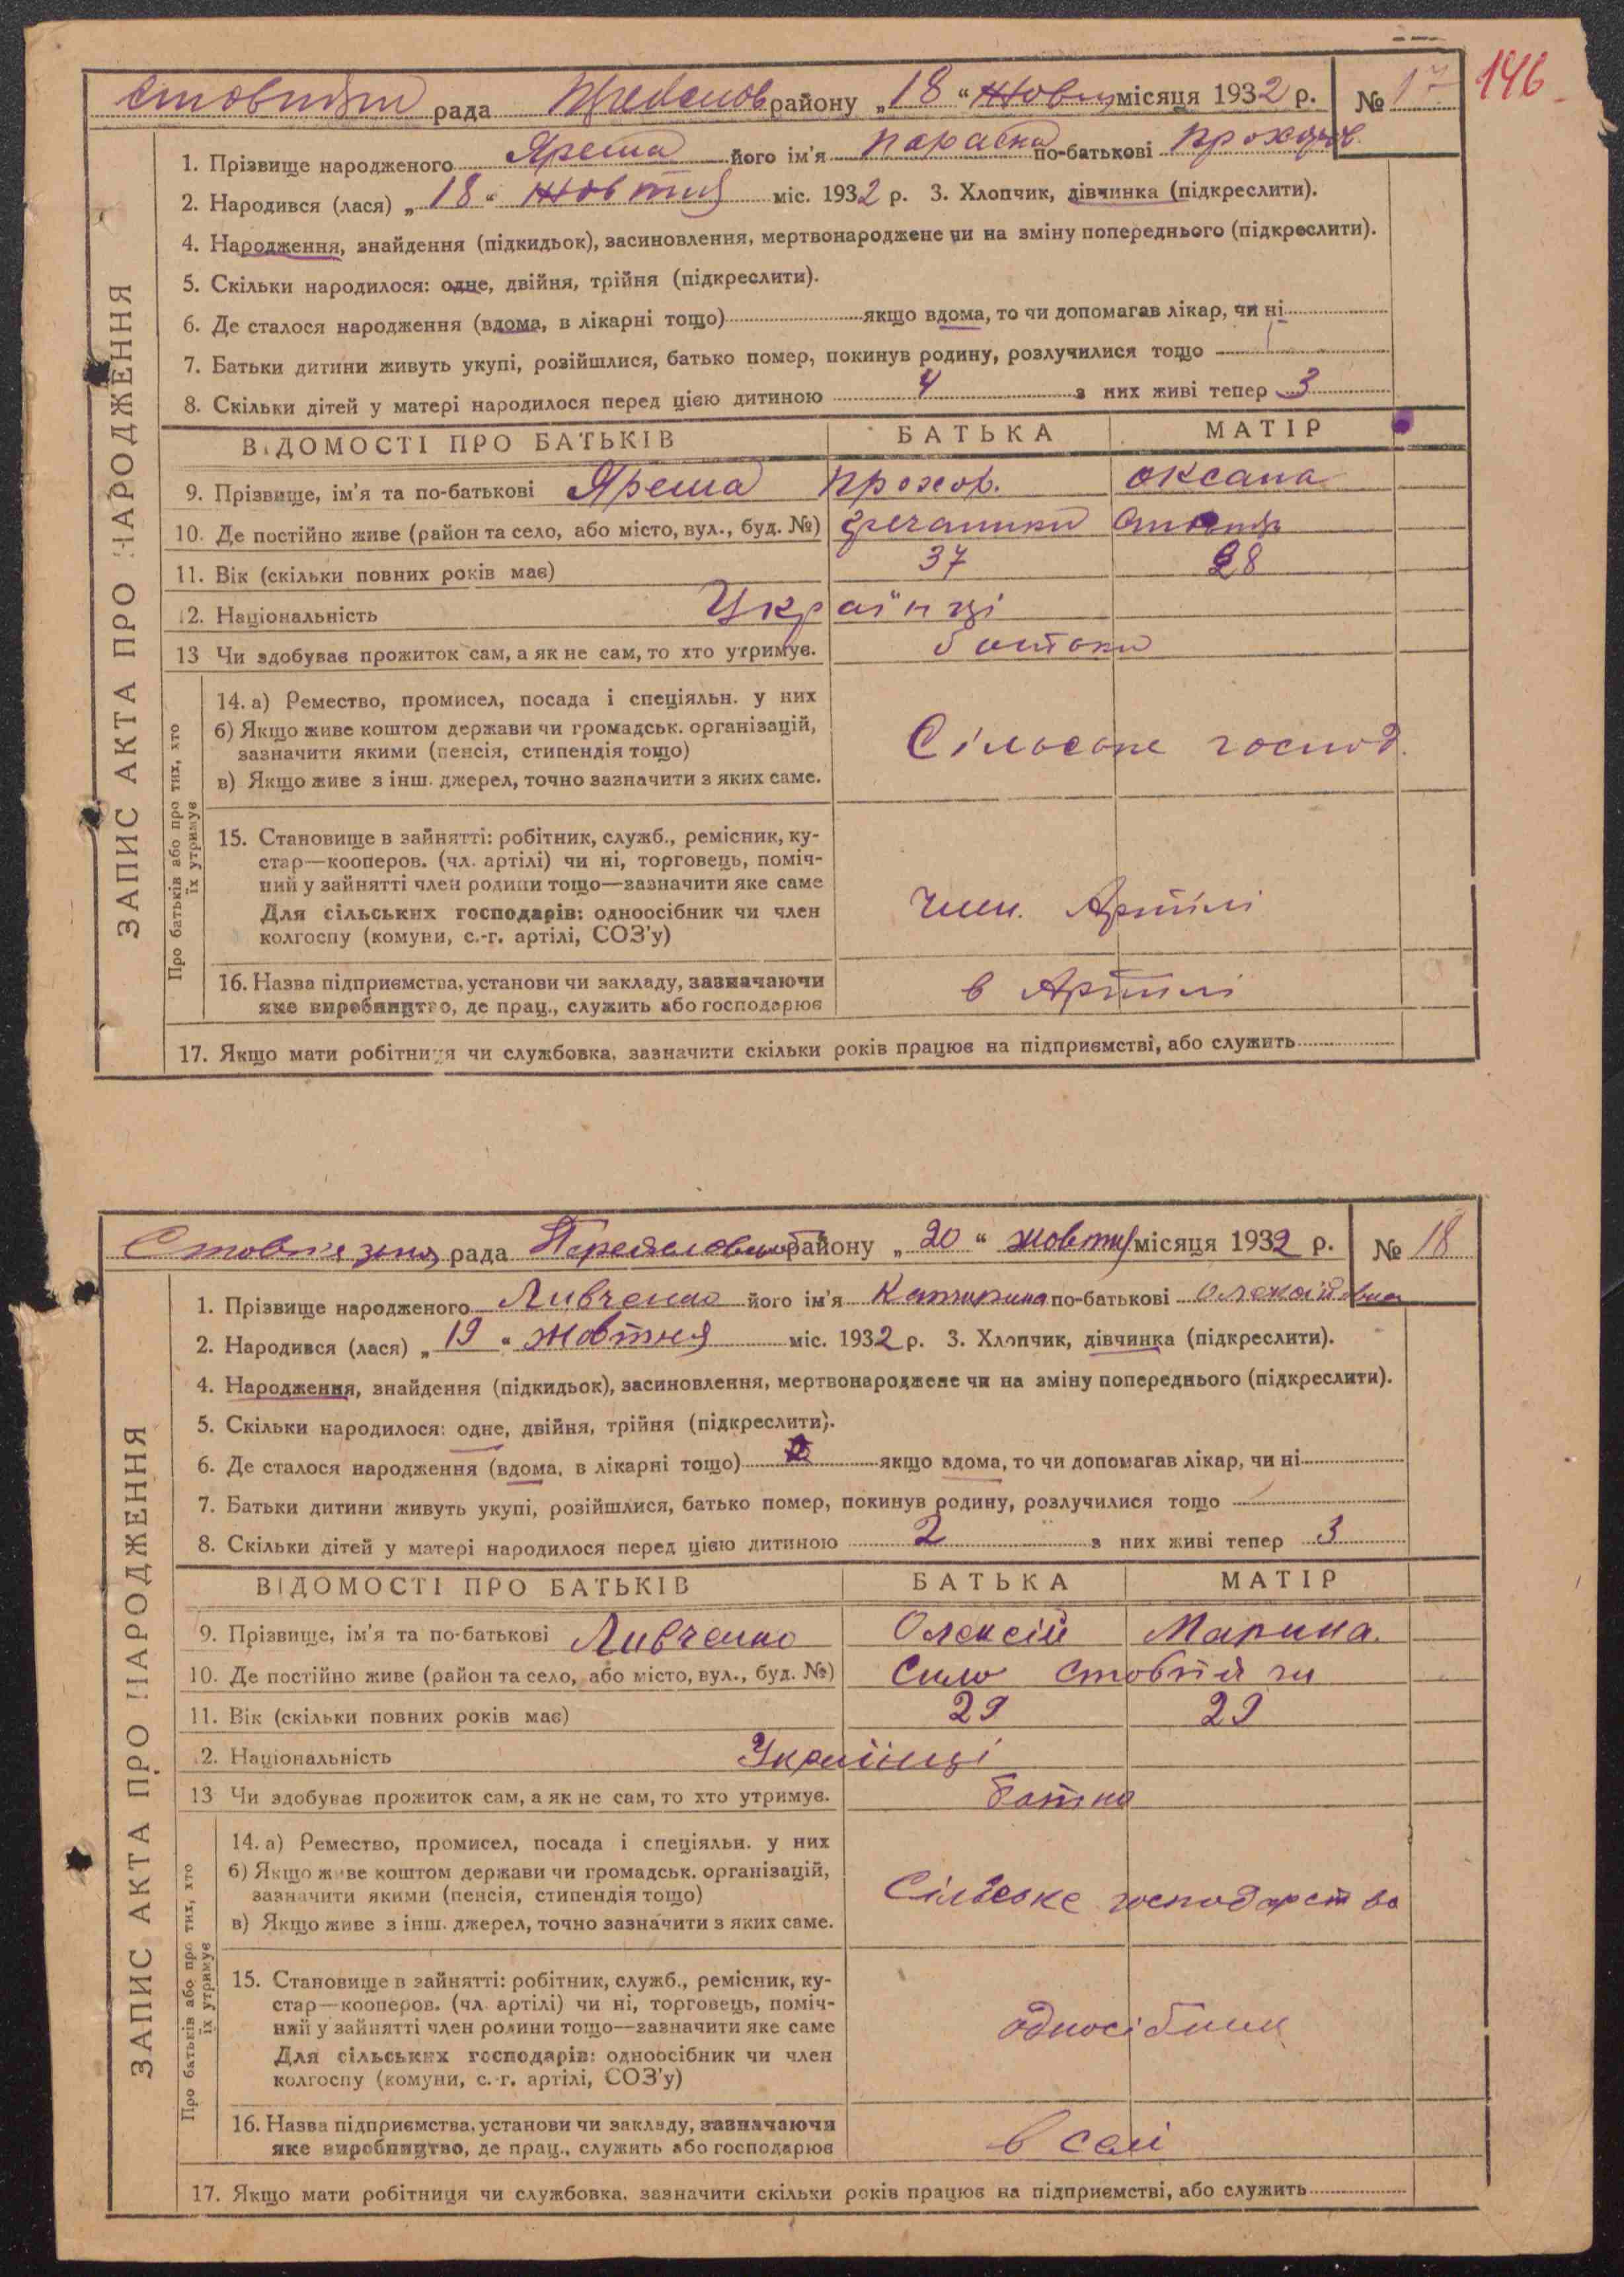 146
рада району „18“ місяця 1932 р. № 17
1. Прізвище народженого Яреша його ім'я Параска по-батькові Прохоров.
2. Народився (лася) „18“ Жовтня міс. 1932 р. 3. Хлопчик, дівчинка (підкреслити).
4. Народження, знайдення (підкидьок), засиновлення, мертвонароджене чи на зміну попереднього (підкреслити).
5. Скільки народилося: одне, двійня, трійня (підкреслити).
6. Де сталося народження (вдома, в лікарні тощо) якщо вдома, то чи допомагав лікар, чи ні
7. Батьки дитини живуть укупі, розійшлися, батько помер, покинув родину, розлучилися тощо
8. Скільки дітей у матері народилося перед цією дитиною 4 з них живі тепер 3
ВІДОМОСТІ ПРО БАТЬКІВ БАТЬКА МАТІР
9. Прізвище, ім'я та по-батькові Яреша Прохор. Оксана
10. Де постійно живе (район та село, або місто, вул., буд. №)
11. Вік (скільки повних років має) 37 28
12. Національність Українці
13 Чи здобуває прожиток сам, а як не сам, то хто утримує.
14. а) Ремество, промисел, посада і спеціяльн. у них
б) Якщо живе коштом держави чи громадськ. організацій,
зазначити якими (пенсія, стипендія тощо)
в) Якщо живе з інш. джерел, точно зазначити з яких саме.
Сільське господ.
15. Становище в зайнятті: робітник, служб., ремісник, ку-
стар—кооперов. (чл. артілі) чи ні, торговець, поміч-
ний у зайнятті член родини тощо—зазначити яке саме
Для сільських господарів: одноосібник чи член
колгоспу (комуни, с.-г. артілі, СОЗ'у)
член. Артілі
16. Назва підприємства, установи чи закладу, зазначаючи
яке виробництво, де прац., служить або господарює
в Артілі
17. Якщо мати робітниця чи службовка, зазначити скільки років працює на підприємстві, або служить
ЗАПИС АКТА ПРО НАРОДЖЕННЯ
Про батьків або про тих, хто
їх утримує
рада району „20“ жовтня місяця 1932 р. № 18
1. Прізвище народженого Ливченко його ім'я Катирина по-батькові
2. Народився (лася) „19“ жовтня міс. 1932 р. 3. Хлопчик, дівчинка (підкреслити).
4. Народження, знайдення (підкидьок), засиновлення, мертвонароджене чи на зміну попереднього (підкреслити).
5. Скільки народилося: одне, двійня, трійня (підкреслити).
6. Де сталося народження (вдома, в лікарні тощо) якщо вдома, то чи допомагав лікар, чи ні
7. Батьки дитини живуть укупі, розійшлися, батько помер, покинув родину, розлучилися тощо
8. Скільки дітей у матері народилося перед цією дитиною 2 з них живі тепер 3
ВІДОМОСТІ ПРО БАТЬКІВ БАТЬКА МАТІР
9. Прізвище, ім'я та по-батькові Ливченко Олексій Марина.
10. Де постійно живе (район та село, або місто, вул., буд. №) Село
11. Вік (скільки повних років має) 29 29
12. Національність Українці
13 Чи здобуває прожиток сам, а як не сам, то хто утримує. батько
14. а) Ремество, промисел, посада і спеціяльн. у них
б) Якщо живе коштом держави чи громадськ. організацій,
зазначити якими (пенсія, стипендія тощо)
в) Якщо живе з інш. джерел, точно зазначити з яких саме.
Сільське господарство
15. Становище в зайнятті: робітник, служб., ремісник, ку-
стар—кооперов. (чл. артілі) чи ні, торговець, поміч-
ний у зайнятті член родини тощо—зазначити яке саме
Для сільських господарів: одноосібник чи член
колгоспу (комуни, с.-г. артілі, СОЗ'у)
односібник
16. Назва підприємства, установи чи закладу, зазначаючи
яке виробництво, де прац., служить або господарює
в селі
17. Якщо мати робітниця чи службовка, зазначити скільки років працює на підприємстві, або служить
ЗАПИС АКТА ПРО НАРОДЖЕННЯ
Про батьків або про тих, хто
їх утримує